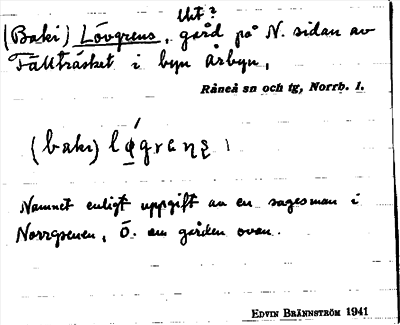 Utt?
(Baki) Lövgrens, gård på N. sidan av
Fällträsket i byn Årbyn.
Råneå sn och tg, Norrb. l.
(baki)
Namnet enligt uppgift av en sagesman i
Norrgrenen, Ö. om gården ovan.
EDVIN BRÄNNSTRÖM 1941